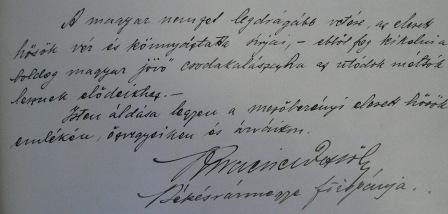 A magyar nemzet legdrágább vetése, az elesett
hősök vér és könnyáztatta sírjai, – ebből fog kikelni a
boldog magyar jövő csodakalászba az utódok méltók
lesznek elődeikhez. –
Isten áldása legyen a mezőberényi elesett hősök
emlékén, özvegyeiken és árváikon.
Békésvármegye főispánja.